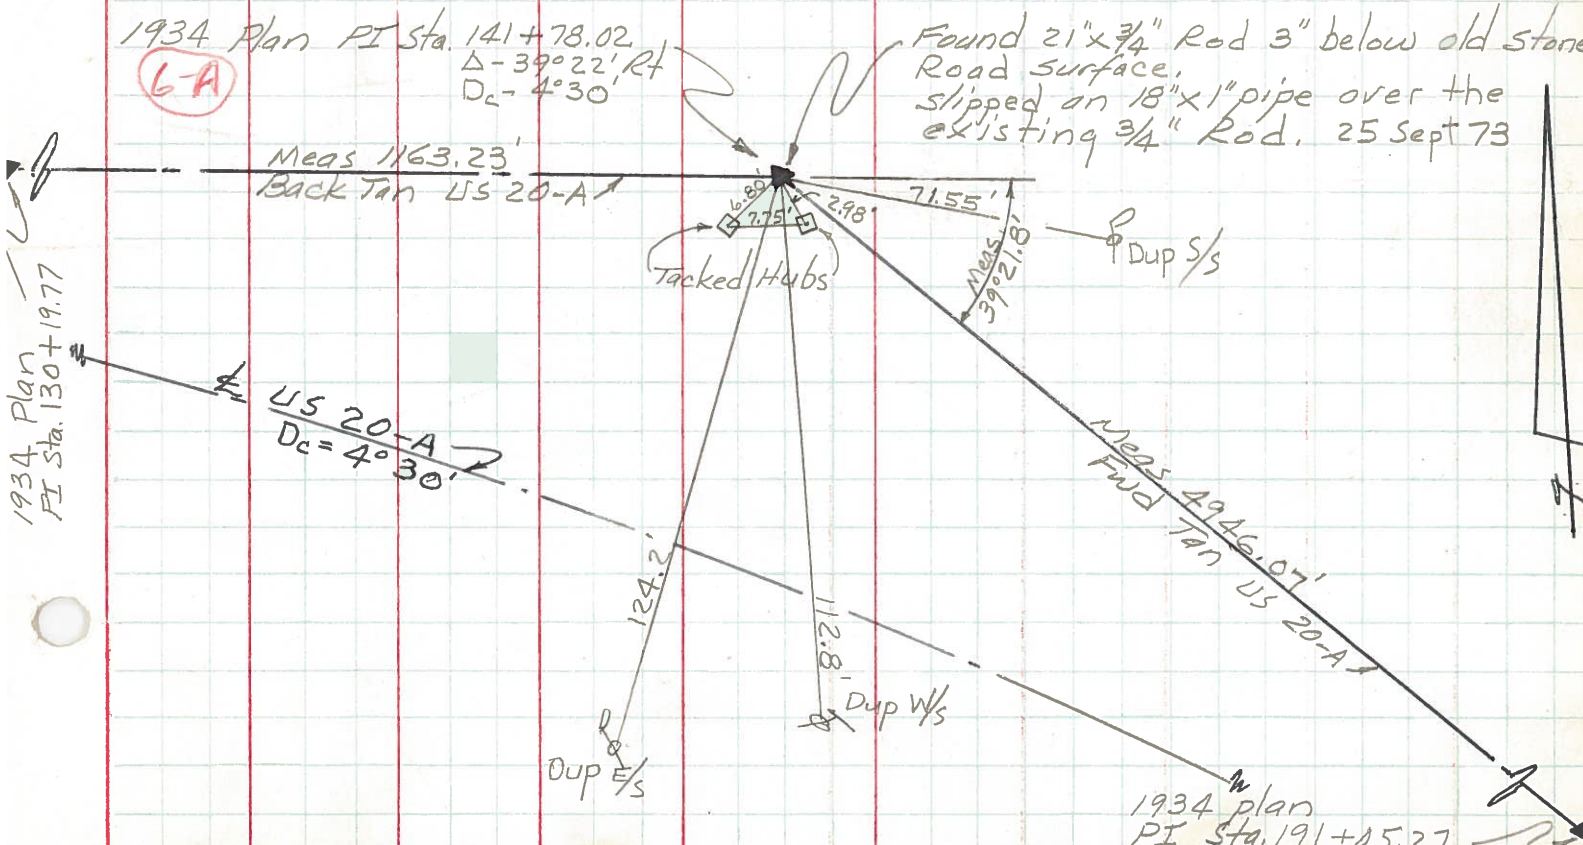 1934 Plan PI Sta. 141+78.02
Δ-39°22' Rt
Dc- 4°30'
6-A
Found 21"x 3/4" Rod 3" below old stone
Road surface,
slipped an 18"x1" pipe over the
existing 3/4" Rod. 25 Sept 73
Meas 1163.23'
Back Tan US 20-A
6.80'
7.75'
2.98'
71.55'
Meas.
39°21.8'
Dup S/s
Tacked Hubs
1934 Plan
PI Sta. 130+19.77
℄ US 20-A
Dc = 4°30'
Meas. 4946.07'
Fwd Tan US 20-A
124.2'
112.8'
Dup W/s
Dup E/s
1934 plan
PI Sta. 191+45.27